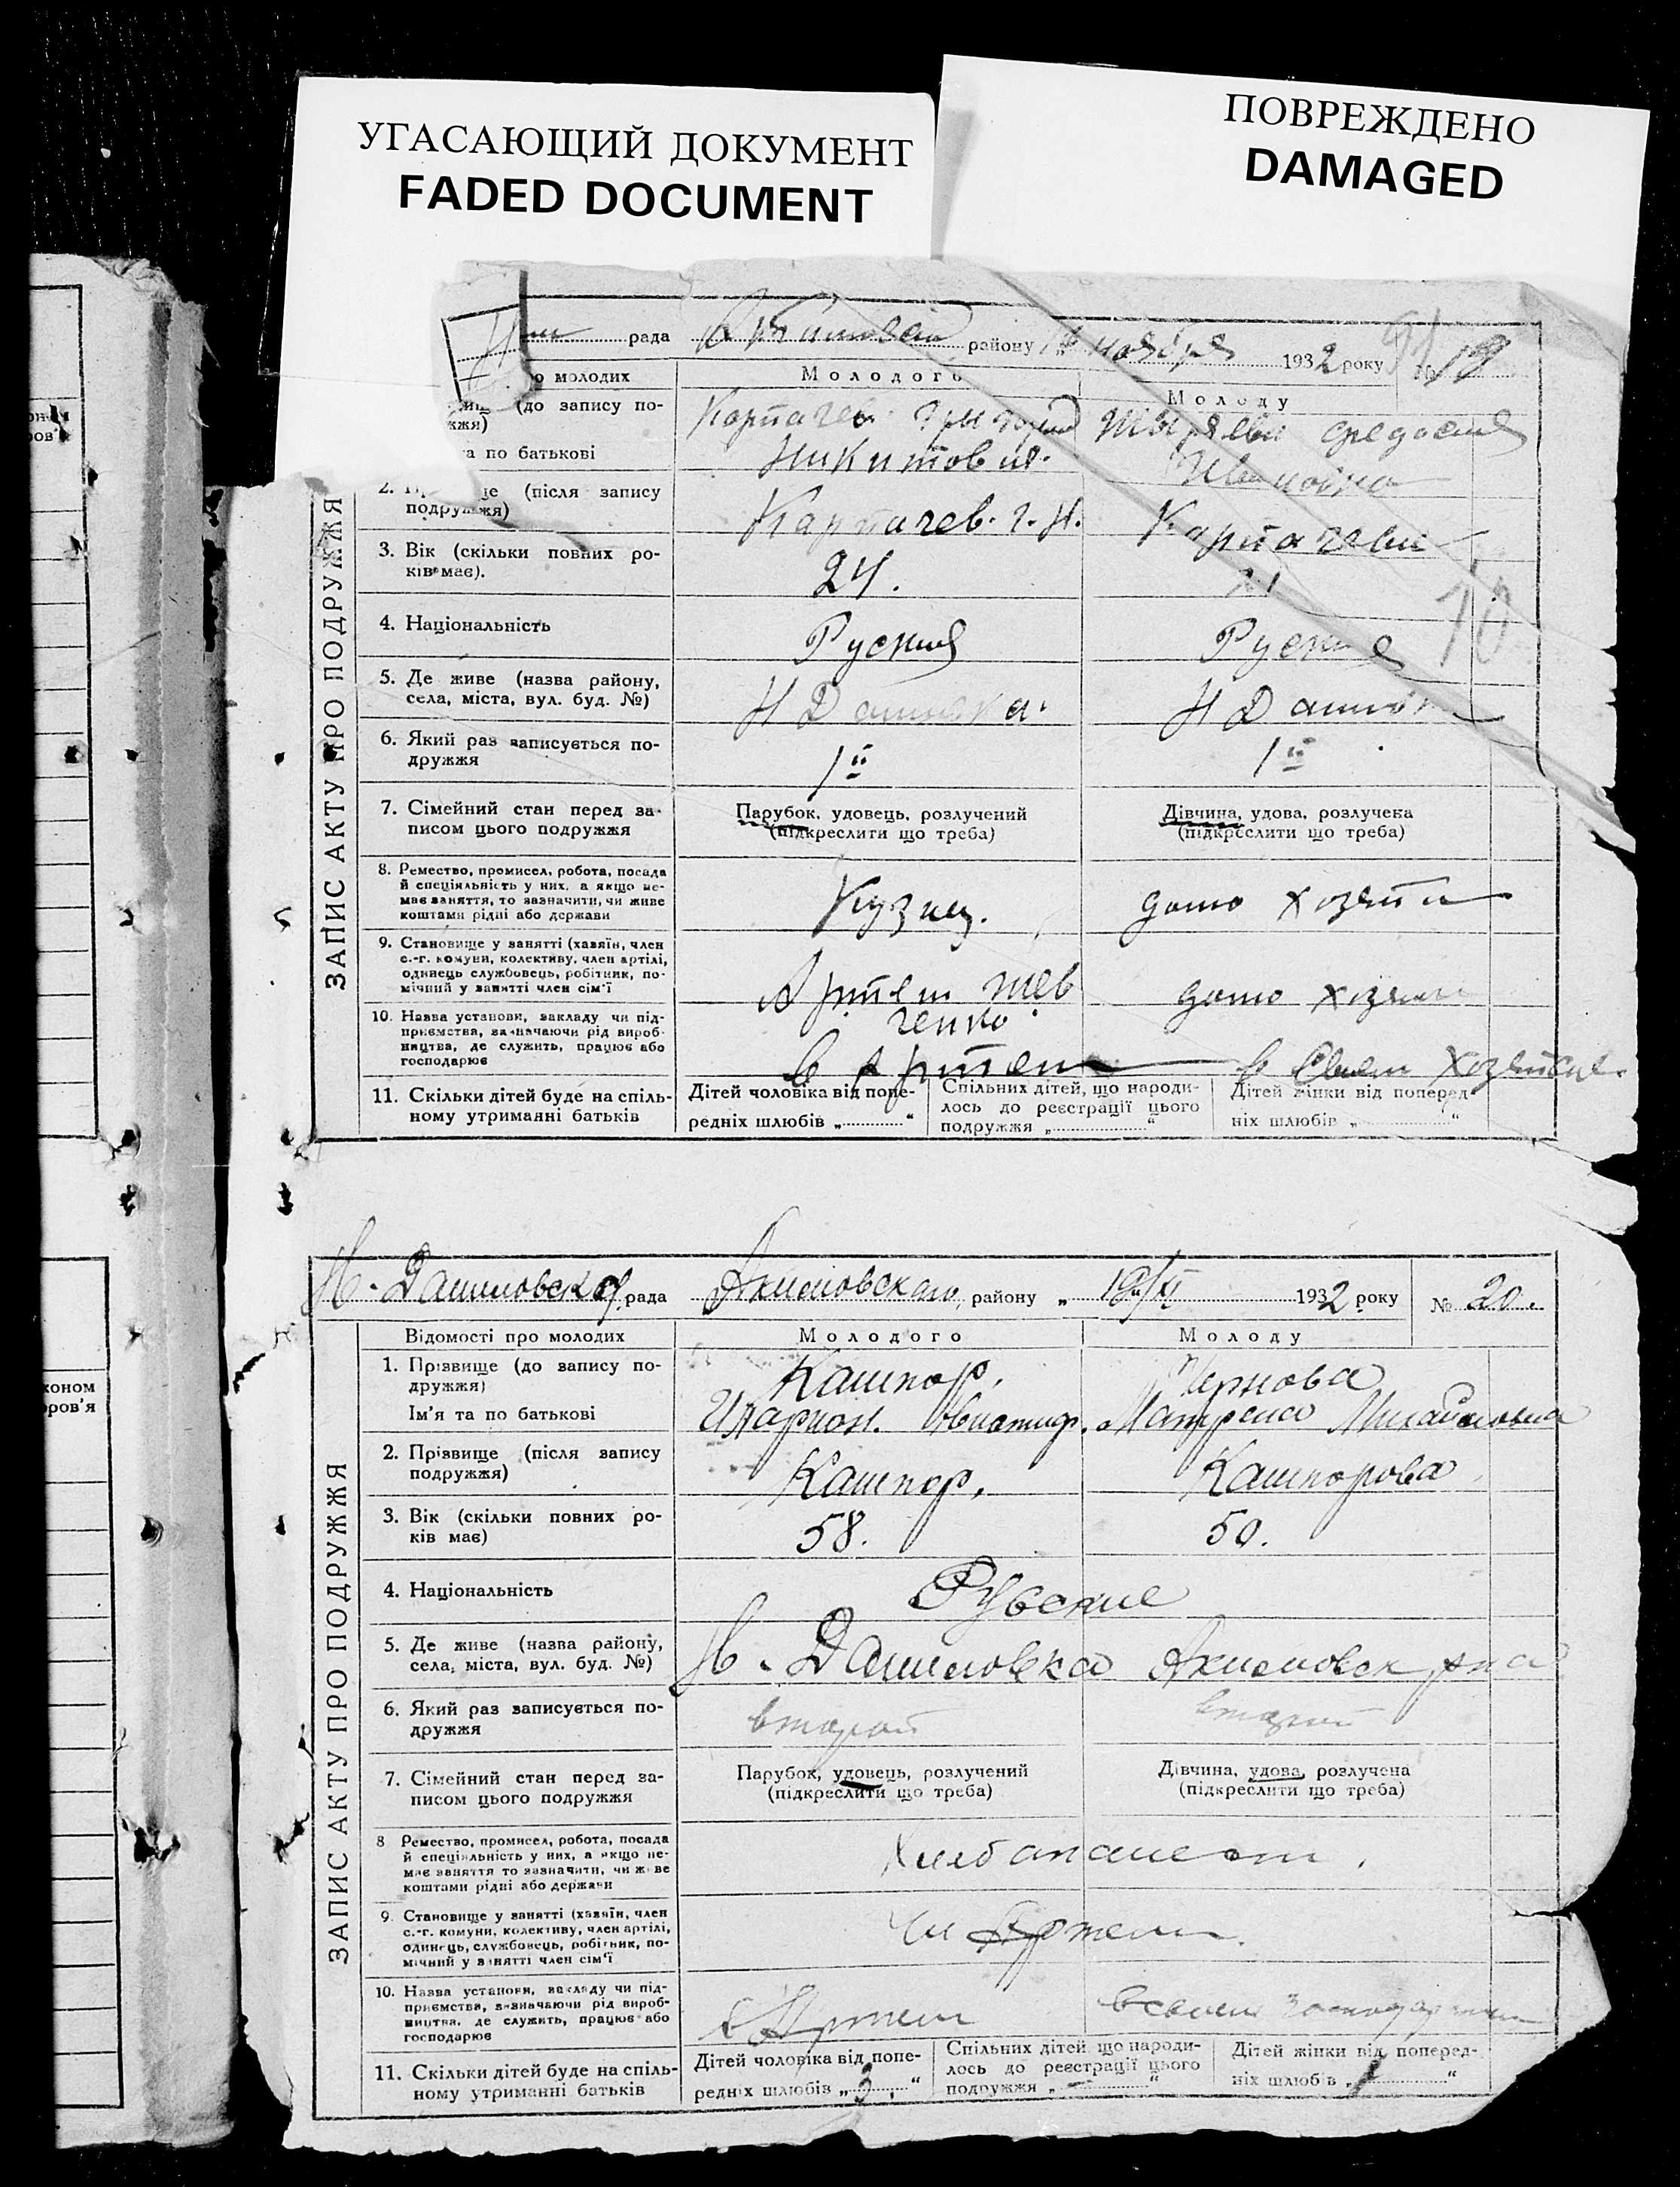 УГАСАЮЩИЙ ДОКУМЕНТ
FADED DOCUMENT
ПОВРЕЖДЕНО
DAMAGED
рада району ноября 1932 року 19
о молодих Молодого Молоду
(до запису по-
жжя)
Карпачев
а по батькові
Никитович
Ивановна
2. ще (після запису
подружжя)
Карпачев. Г. Н. Карпачева
3. Вік (скільки повних ро-
ків має).
24. 21
4. Національність
Руский Руская
10
5. Де живе (назва району,
села, міста, вул. буд. №)
Н Даниловка.
6. Який раз записується по-
дружжя
1й 1й
7. Сімейний стан перед за-
писом цього подружжя
Парубок, удовець, розлучений
(підкреслити що треба)
Дівчина, удова, розлучена
(підкреслити що треба)
8. Ремество, промисел, робота, посада
й спеціяльність у них, а якщо не-
має заняття, то зазначити, чи живе
коштами рідні або держави
Кузнец.
9. Становище у занятті (хазяїн, член
с.-г. комуни, колективу, член артілі,
одинець службовець, робітник, по-
мічний у занятті член сім'ї
Артель Шев
ченко
10. Назва установи, закладу чи під-
приємства, зазначаючи рід вироб-
ництва, де служить, працює або
господарює
в артели
11. Скільки дітей буде на спіль-
ному утриманні батьків
Дітей чоловіка від попе-
редніх шлюбів „ “
Спільних дітей, що народи-
лось до реєстрації цього
подружжя „ “
Дітей жінки від поперед-
ніх шлюбів „ “
ЗАПИС АКТУ ПРО ПОДРУЖЖЯ
Н-Даниловской рада Акимовского району „ 19/XI 1932 року № 20.
Відомості про молодих Молодого Молоду
1. Прізвище (до запису по-
дружжя)
Кашпор, Чернова
Ім'я та по батькові
Матрена Михайловна
2. Прізвище (після запису
подружжя)
Кашпор, Кашпорова
3. Вік (скільки повних ро-
ків має)
58. 50.
4. Національність
Русские
5. Де живе (назва району,
села, міста, вул. буд. №)
Н-Даниловка Акимовск р-на
6. Який раз записується по-
дружжя
второй второй
7. Сімейний стан перед за-
писом цього подружжя
Парубок, удовець, розлучений
(підкреслити що треба)
Дівчина, удова, розлучена
(підкреслити що треба)
8 Ремество, промисел, робота, посада
й спеціяльність у них, а якщо не-
має заняття то зазначити, чи живе
коштами рідні або держави
9. Становище у занятті (хазяїн, член
с.-г. комуни, колективу, член артілі,
одинець, службовець, робітник, по-
мічний у занятті член сім'ї
Чл Артели.
10. Назва установи, закладу чи під-
приємства, зазначаючи рід вироб-
ництва, де служить, працює або
господарює
11. Скільки дітей буде на спіль-
ному утриманні батьків
Дітей чоловіка від попе-
редніх шлюбів „ 3. “
Спільних дітей, що народи-
лось до реєстрації цього
подружжя „ — “
Дітей жінки від поперед-
ніх шлюбів „ 1 “
ЗАПИС АКТУ ПРО ПОДРУЖЖЯ
коном
ров'я